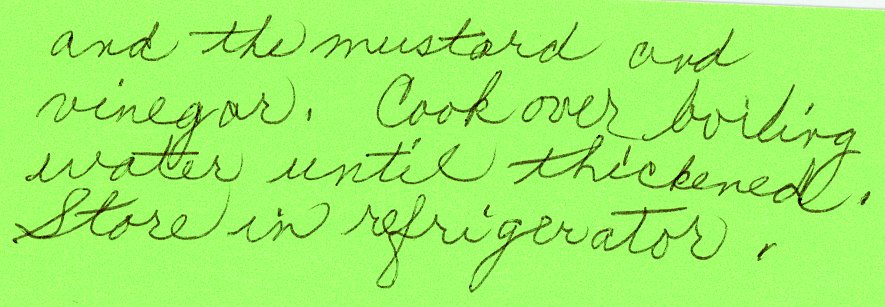 and the mustard and
vinegar. Cook over boiling
water until thickened.
Store in refrigerator.